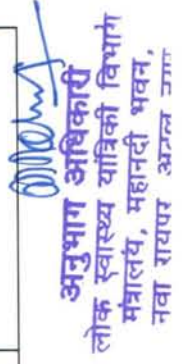 अनुभाग अधिकारी
लोक स्वास्थ्य यांत्रिकी विभाग
मंत्रालय, महानदी भवन,
नवा रायपर अटल